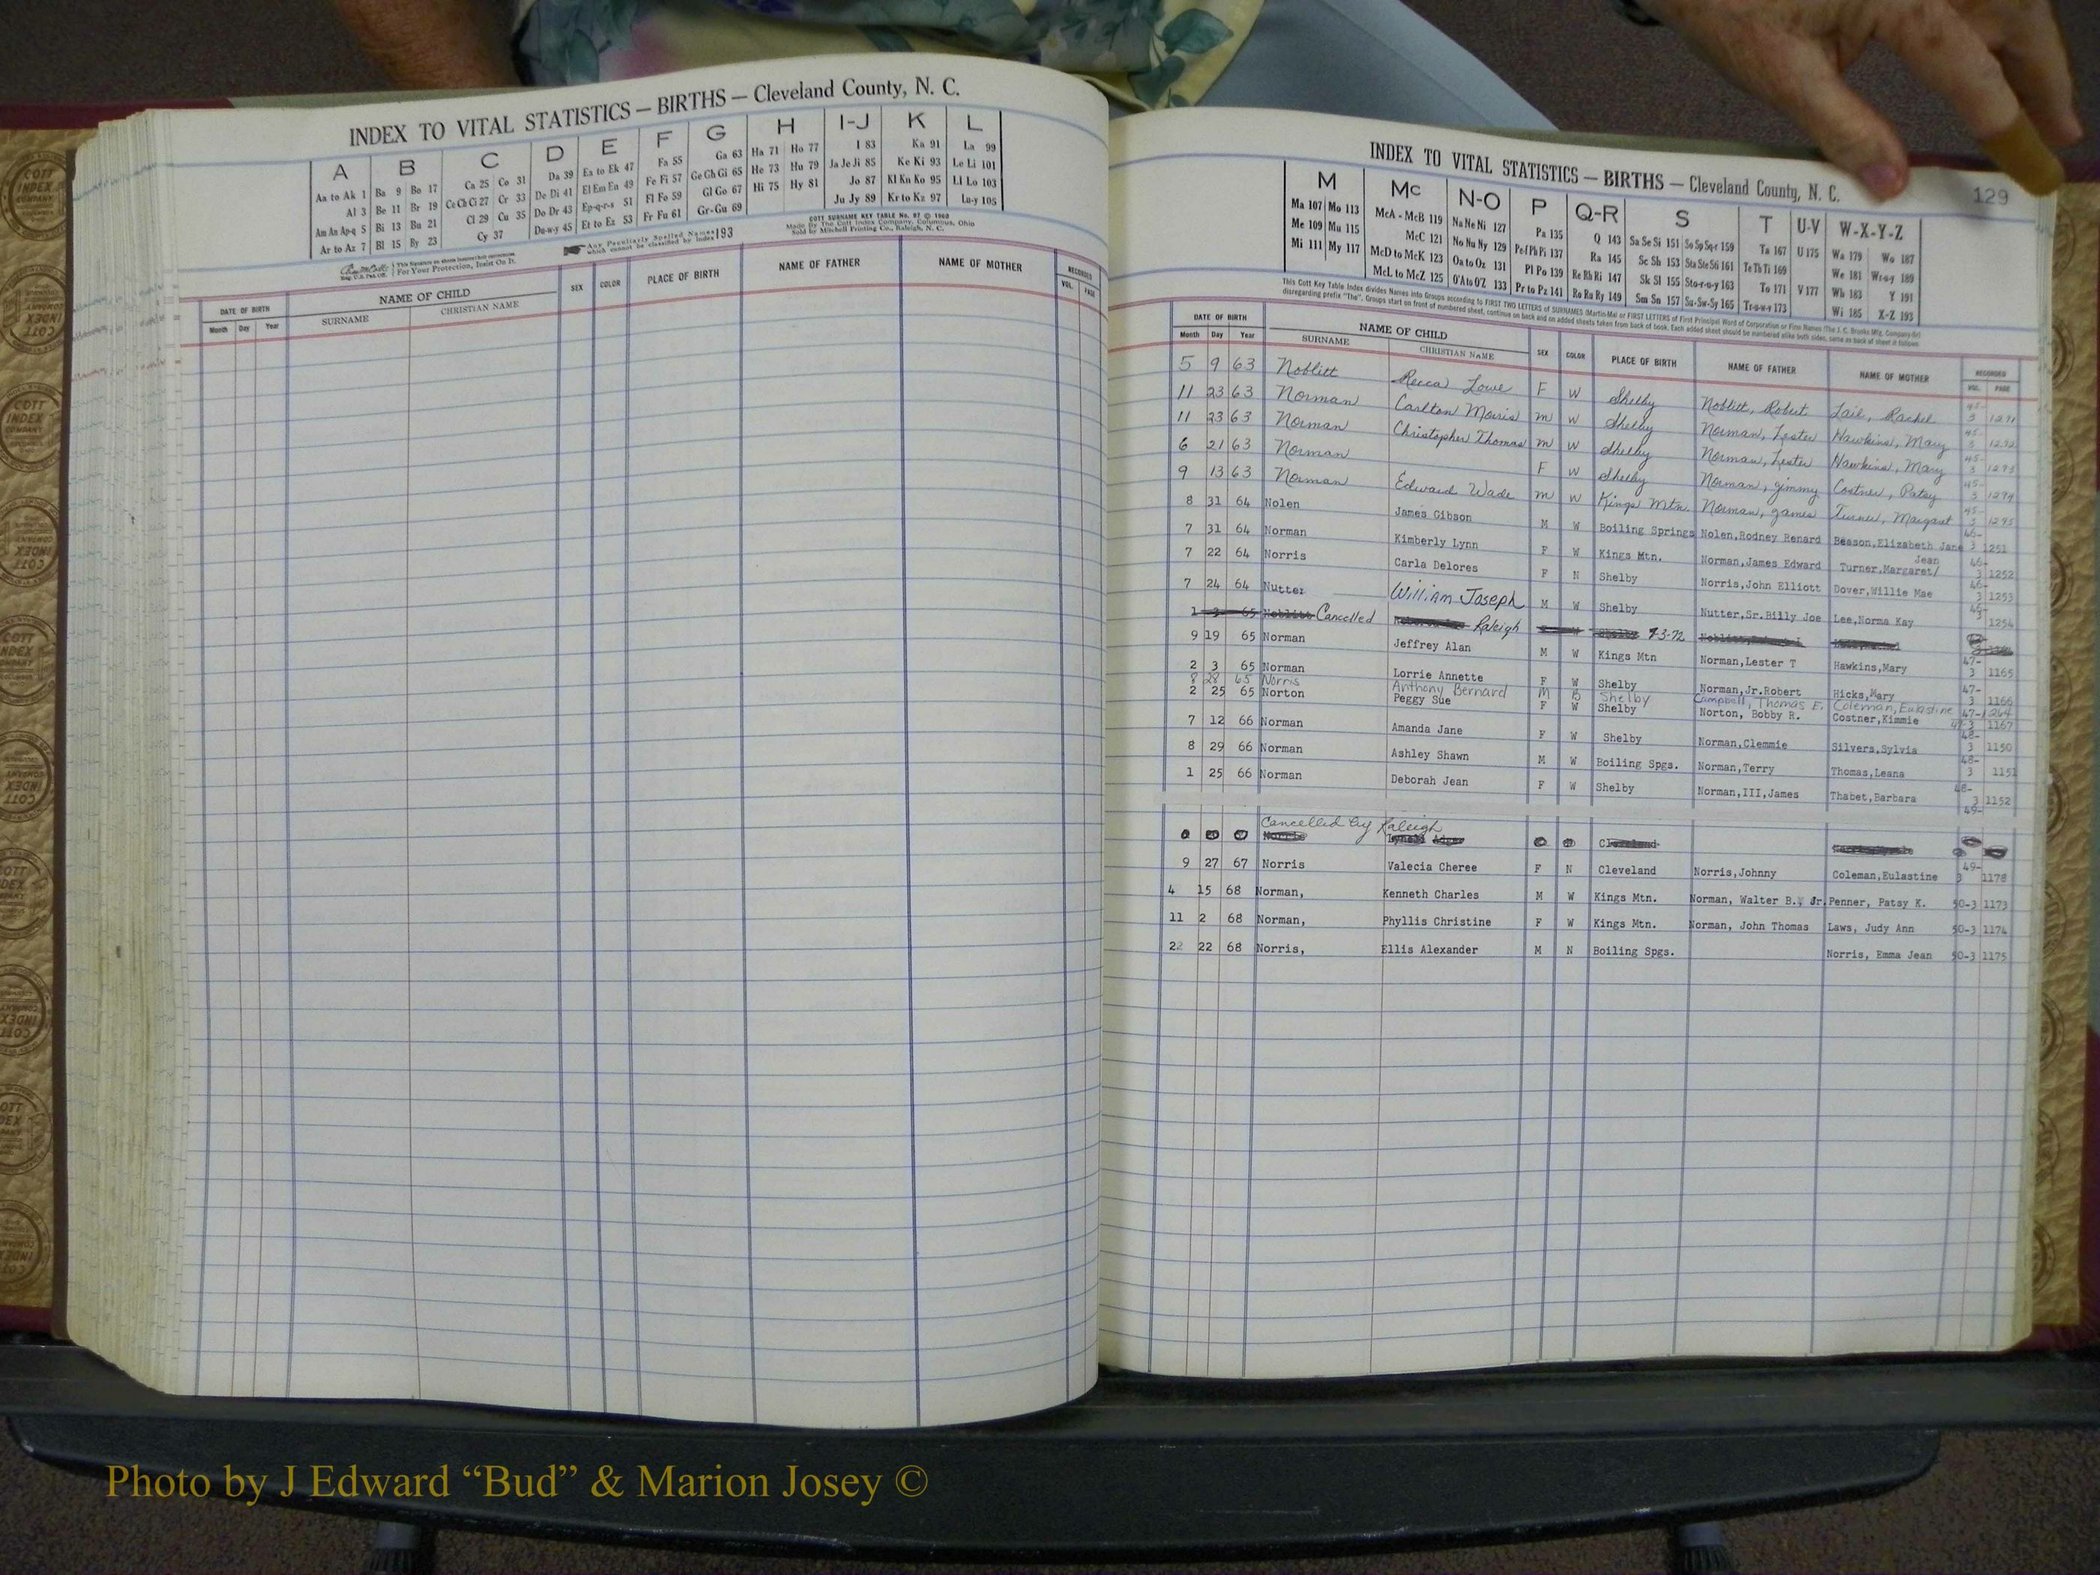 INDEX TO VITAL STATISTICS — BIRTHS — Cleveland County, N. C.
A B C D E F G H I-J K L
Aa to Ak 1 Ba 9 Bo 17 Ca 25 Co 31 Da 39 Ea to Ek 47 Fa 55 Ga 63 Ha 71 Ho 77 I 83 Ka 91 La 99
Al 3 Be 11 Br 19 Ce Ch Ci 27 Cr 33 De Di 41 El Em En 49 Fe Fi 57 Ge Gh Gi 65 He 73 Hu 79 Ja Je Ji 85 Ke Ki 93 Le Li 101
Am An Ap-q 5 Bi 13 Bu 21 Cl 29 Cu 35 Do Dr 43 Ep-q-r-s 51 Fl Fo 59 Gl Go 67 Hi 75 Hy 81 Jo 87 Kl Kn Ko 95 Ll Lo 103
Ar to Az 7 Bl 15 By 23 Cy 37 Du-w-y 45 Et to Ez 53 Fr Fu 61 Gr-Gu 69 Ju Jy 89 Kr to Kz 97 Lu-y 105
This Signature on sheets insures their correctness.
For Your Protection, Insist On It.
Any Peculiarly Spelled Names which cannot be classified by index 193
COTT SURNAME KEY TABLE No. 97 © 1960
Made By The Cott Index Company, Columbus, Ohio
Sold by Mitchell Printing Co., Raleigh, N. C.
DATE OF BIRTH NAME OF CHILD SEX COLOR PLACE OF BIRTH NAME OF FATHER NAME OF MOTHER RECORDED
Month Day Year SURNAME CHRISTIAN NAME VOL. PAGE
129
INDEX TO VITAL STATISTICS — BIRTHS — Cleveland County, N. C.
M Mc N-O P Q-R S T U-V W-X-Y-Z
Ma 107 Mo 113 McA - McB 119 Na Ne Ni 127 Pa 135 Q 143 Sa Se Si 151 So Sp Sq-r 159 Ta 167 U 175 Wa 179 Wo 187
Me 109 Mu 115 McC 121 No Nu Ny 129 Pe Pf Ph Pi 137 Ra 145 Sc Sh 153 Sta Ste Sti 161 Te Th Ti 169 We 181 Wr-u-y 189
Mi 111 My 117 McD to McK 123 Oa to Oz 131 Pl Po 139 Re Rh Ri 147 Sk Sl 155 Sto-r-u-y 163 To 171 V 177 Wh 183 Y 191
McL to McZ 125 O'A to O'Z 133 Pr to Pz 141 Ro Ru Ry 149 Sm Sn 157 Su-Sw-Sy 165 Tr-u-w-y 173 Wi 185 X-Z 193
This Cott Key Table Index divides Names into Groups according to FIRST TWO LETTERS of SURNAMES (Martin-Ma) or FIRST LETTERS of First Principal Word of Corporation or Firm Names (The J. C. Brooks Mfg. Company-Br)
disregarding prefix "The". Groups start on front of numbered sheet, continue on back and on added sheets taken from back of book. Each added sheet should be numbered alike both sides, same as back of sheet it follows.
DATE OF BIRTH NAME OF CHILD SEX COLOR PLACE OF BIRTH NAME OF FATHER NAME OF MOTHER RECORDED
Month Day Year SURNAME CHRISTIAN NAME VOL. PAGE
5 9 63 Noblitt Recca Lowe F W Shelby Noblitt, Robert Lail, Rachel 45-3 1291
11 23 63 Norman Carlton Morris M W Shelby Norman, Lester Hawkins, Mary 45-3 1292
11 23 63 Norman Christopher Thomas M W Shelby Norman, Lester Hawkins, Mary 45-3 1293
6 21 63 Norman F W Shelby Norman, Jimmy Costner, Patsy 45-3 1294
9 13 63 Norman Edward Wade M W Kings Mtn. Norman, James Turner, Margaret 45-3 1295
8 31 64 Nolen James Gibson M W Boiling Springs Nolen,Rodney Renard Beason,Elizabeth Jane 46-3 1251
7 31 64 Norman Kimberly Lynn F W Kings Mtn. Norman,James Edward Turner,Margaret/ Jean 46-3 1252
7 22 64 Norris Carla Delores F N Shelby Norris,John Elliott Dover,Willie Mae 46-3 1253
7 24 64 Nutter William Joseph M W Shelby Nutter,Sr.Billy Joe Lee,Norma Kay 46-3 1254
1 3 65 Noblitt Cancelled Raleigh Shelby 9-3-72
9 19 65 Norman Jeffrey Alan M W Kings Mtn Norman,Lester T Hawkins,Mary 47-3 1165
2 3 65 Norman Lorrie Annette F W Shelby Norman,Jr.Robert Hicks,Mary 47-3 1166
8 28 65 Norris Anthony Bernard M B Shelby Campbell, Thomas E. Coleman, Eulastine 47-1 264
2 25 65 Norton Peggy Sue F W Shelby Norton, Bobby R. Costner,Kimmie 47-3 1167
7 12 66 Norman Amanda Jane F W Shelby Norman,Clemmie Silvers,Sylvia 48-3 1150
8 29 66 Norman Ashley Shawn M W Boiling Spgs. Norman,Terry Thomas,Leana 48-3 1151
1 25 66 Norman Deborah Jean F W Shelby Norman,III,James Thabet,Barbara 48-3 1152
49-
Cancelled by Raleigh
Norris Cleveland
9 27 67 Norris Valecia Cheree F N Cleveland Norris,Johnny Coleman,Eulastine 49-3 1178
4 15 68 Norman, Kenneth Charles M W Kings Mtn. Norman, Walter B., Jr. Penner, Patsy K. 50-3 1173
11 2 68 Norman, Phyllis Christine F W Kings Mtn. Norman, John Thomas Laws, Judy Ann 50-3 1174
22 22 68 Norris, Ellis Alexander M N Boiling Spgs. Norris, Emma Jean 50-3 1175
Photo by J Edward “Bud” & Marion Josey ©